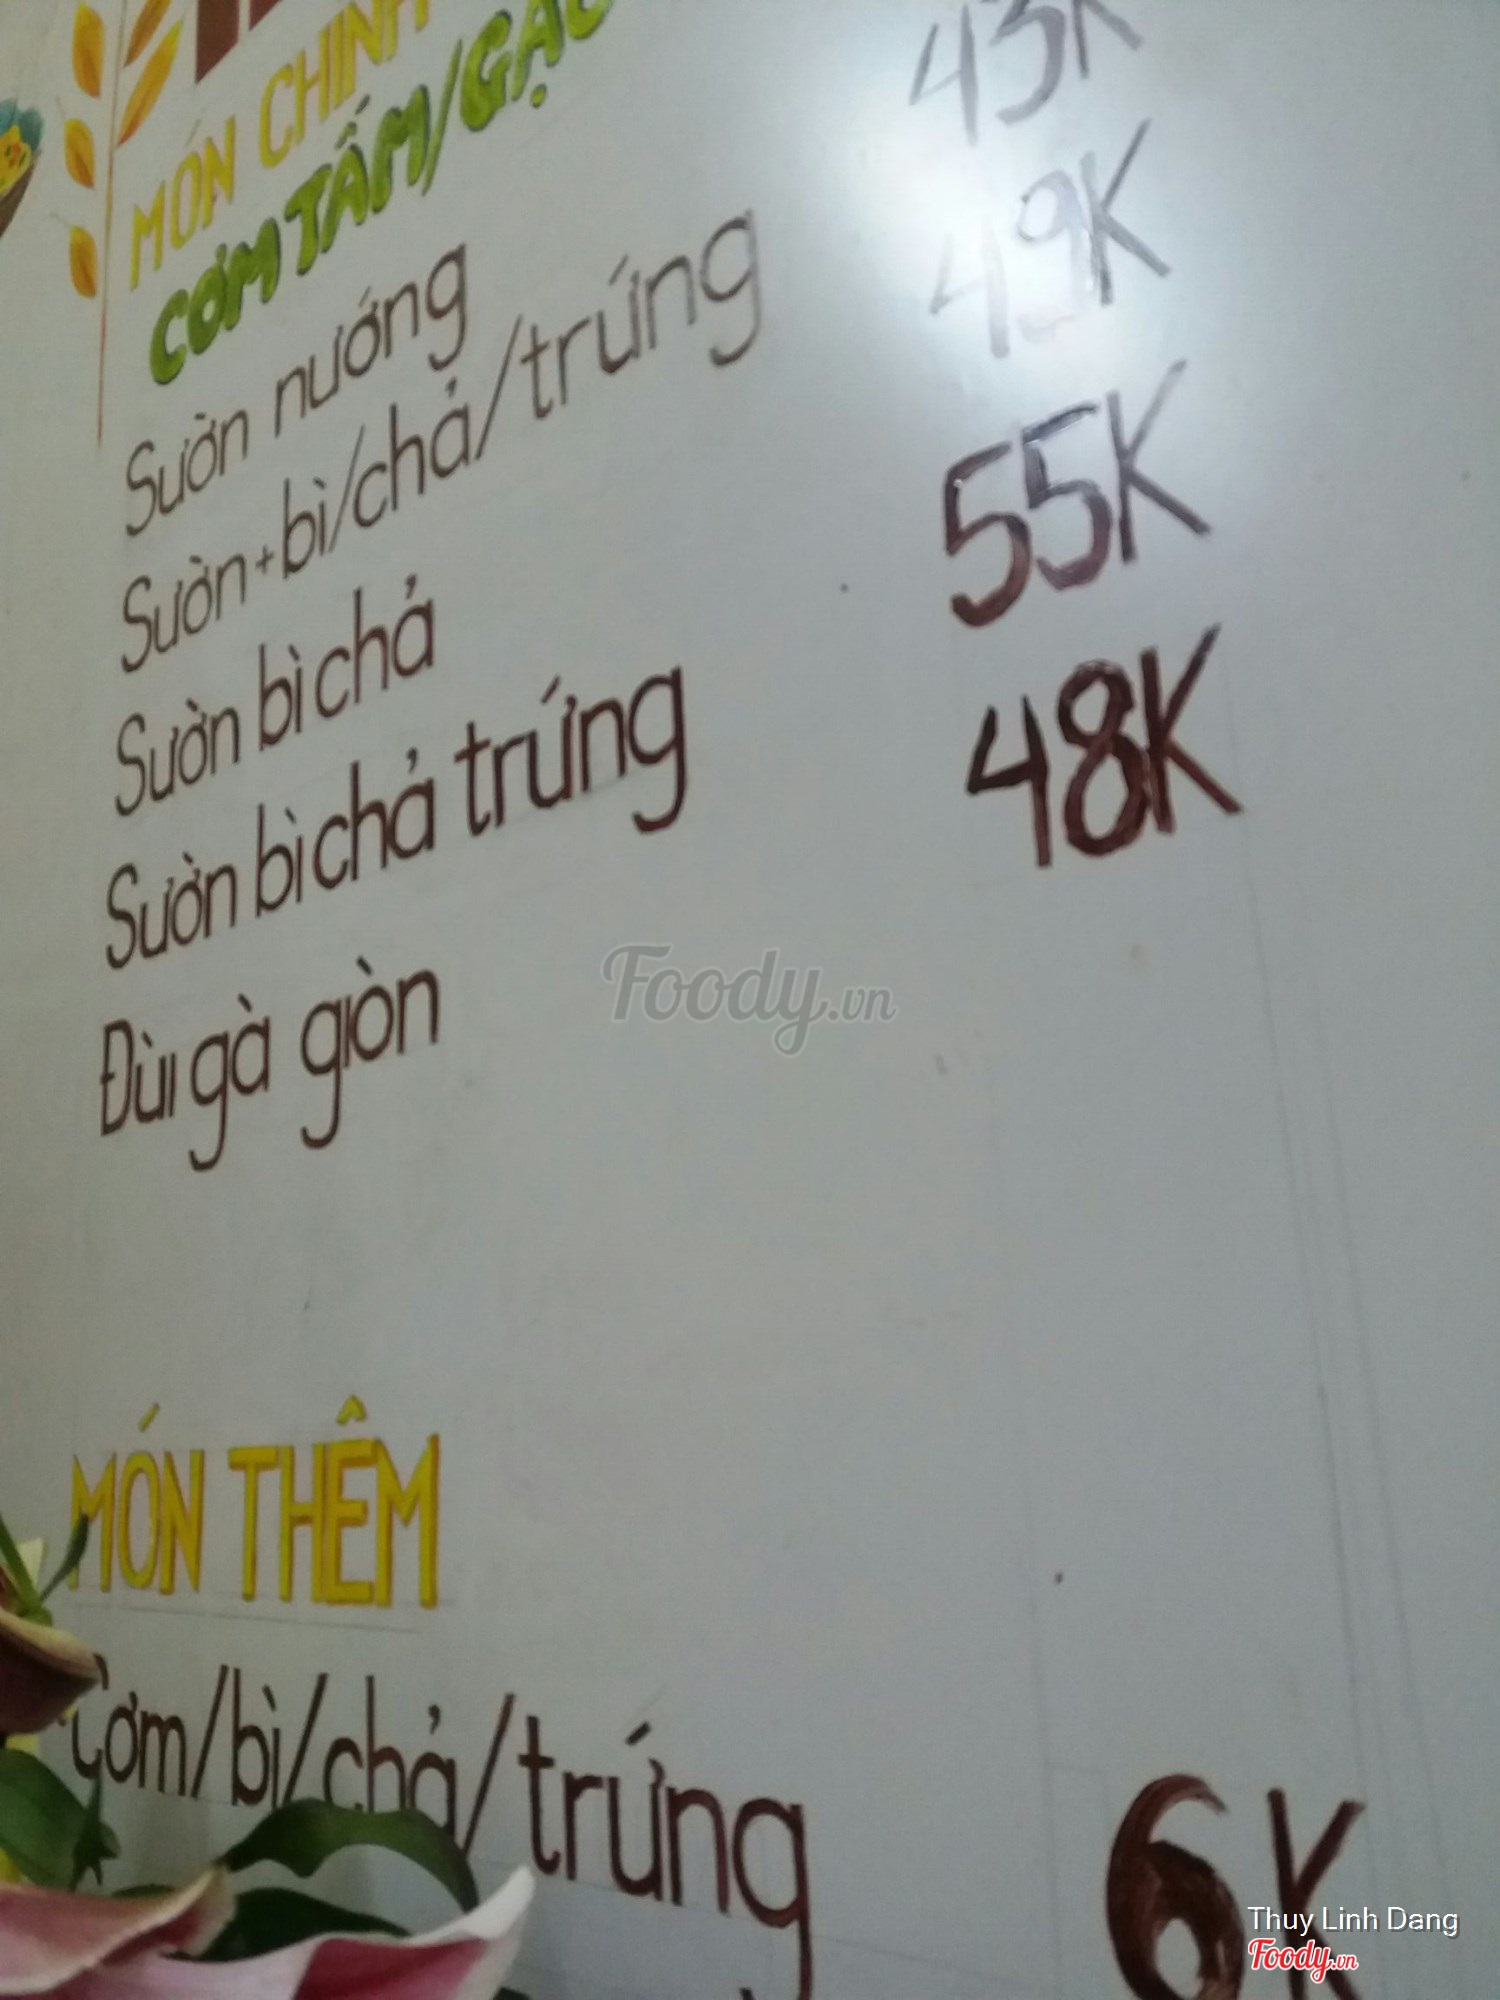 MÓN CHÍNH
CƠM TẤM/GẠO
Sườn nướng
Sườn+bì/chả/trứng 43K
Sườn bì chả 49K
Sườn bì chả trứng 55K
Đùi gà giòn 48K
Foody.vn
MÓN THÊM
Cơm/bì/chả/trứng 6K
Thuy Linh Dang
Foody.vn